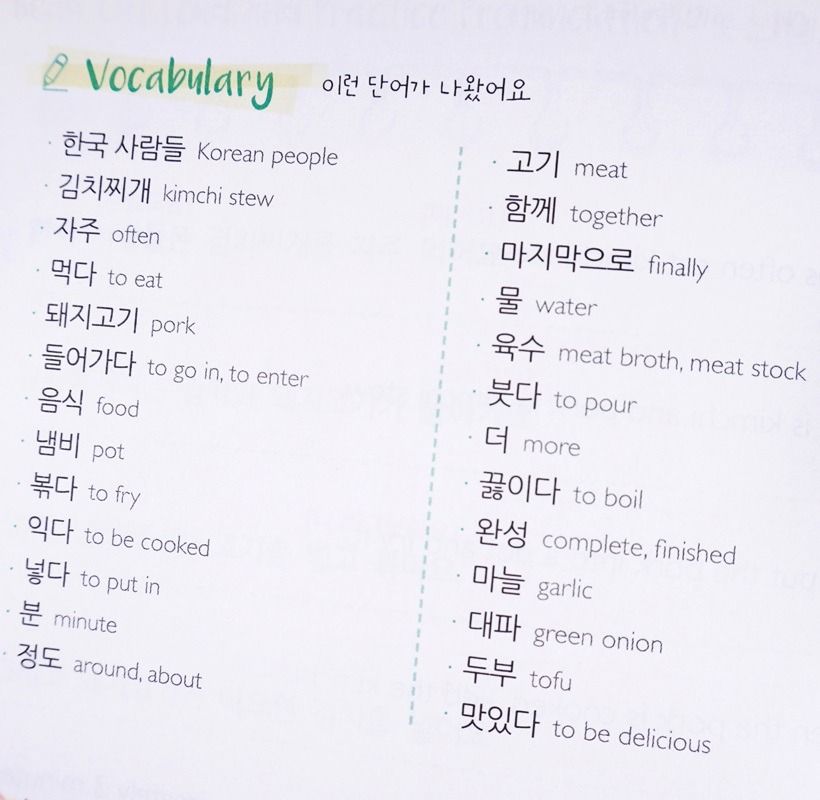 Vocabulary 이런 단어가 나왔어요
한국 사람들 Korean people
김치찌개 kimchi stew
자주 often
먹다 to eat
돼지고기 pork
들어가다 to go in, to enter
음식 food
냄비 pot
볶다 to fry
익다 to be cooked
넣다 to put in
분 minute
정도 around, about
고기 meat
함께 together
마지막으로 finally
물 water
육수 meat broth, meat stock
붓다 to pour
더 more
끓이다 to boil
완성 complete, finished
마늘 garlic
대파 green onion
두부 tofu
맛있다 to be delicious